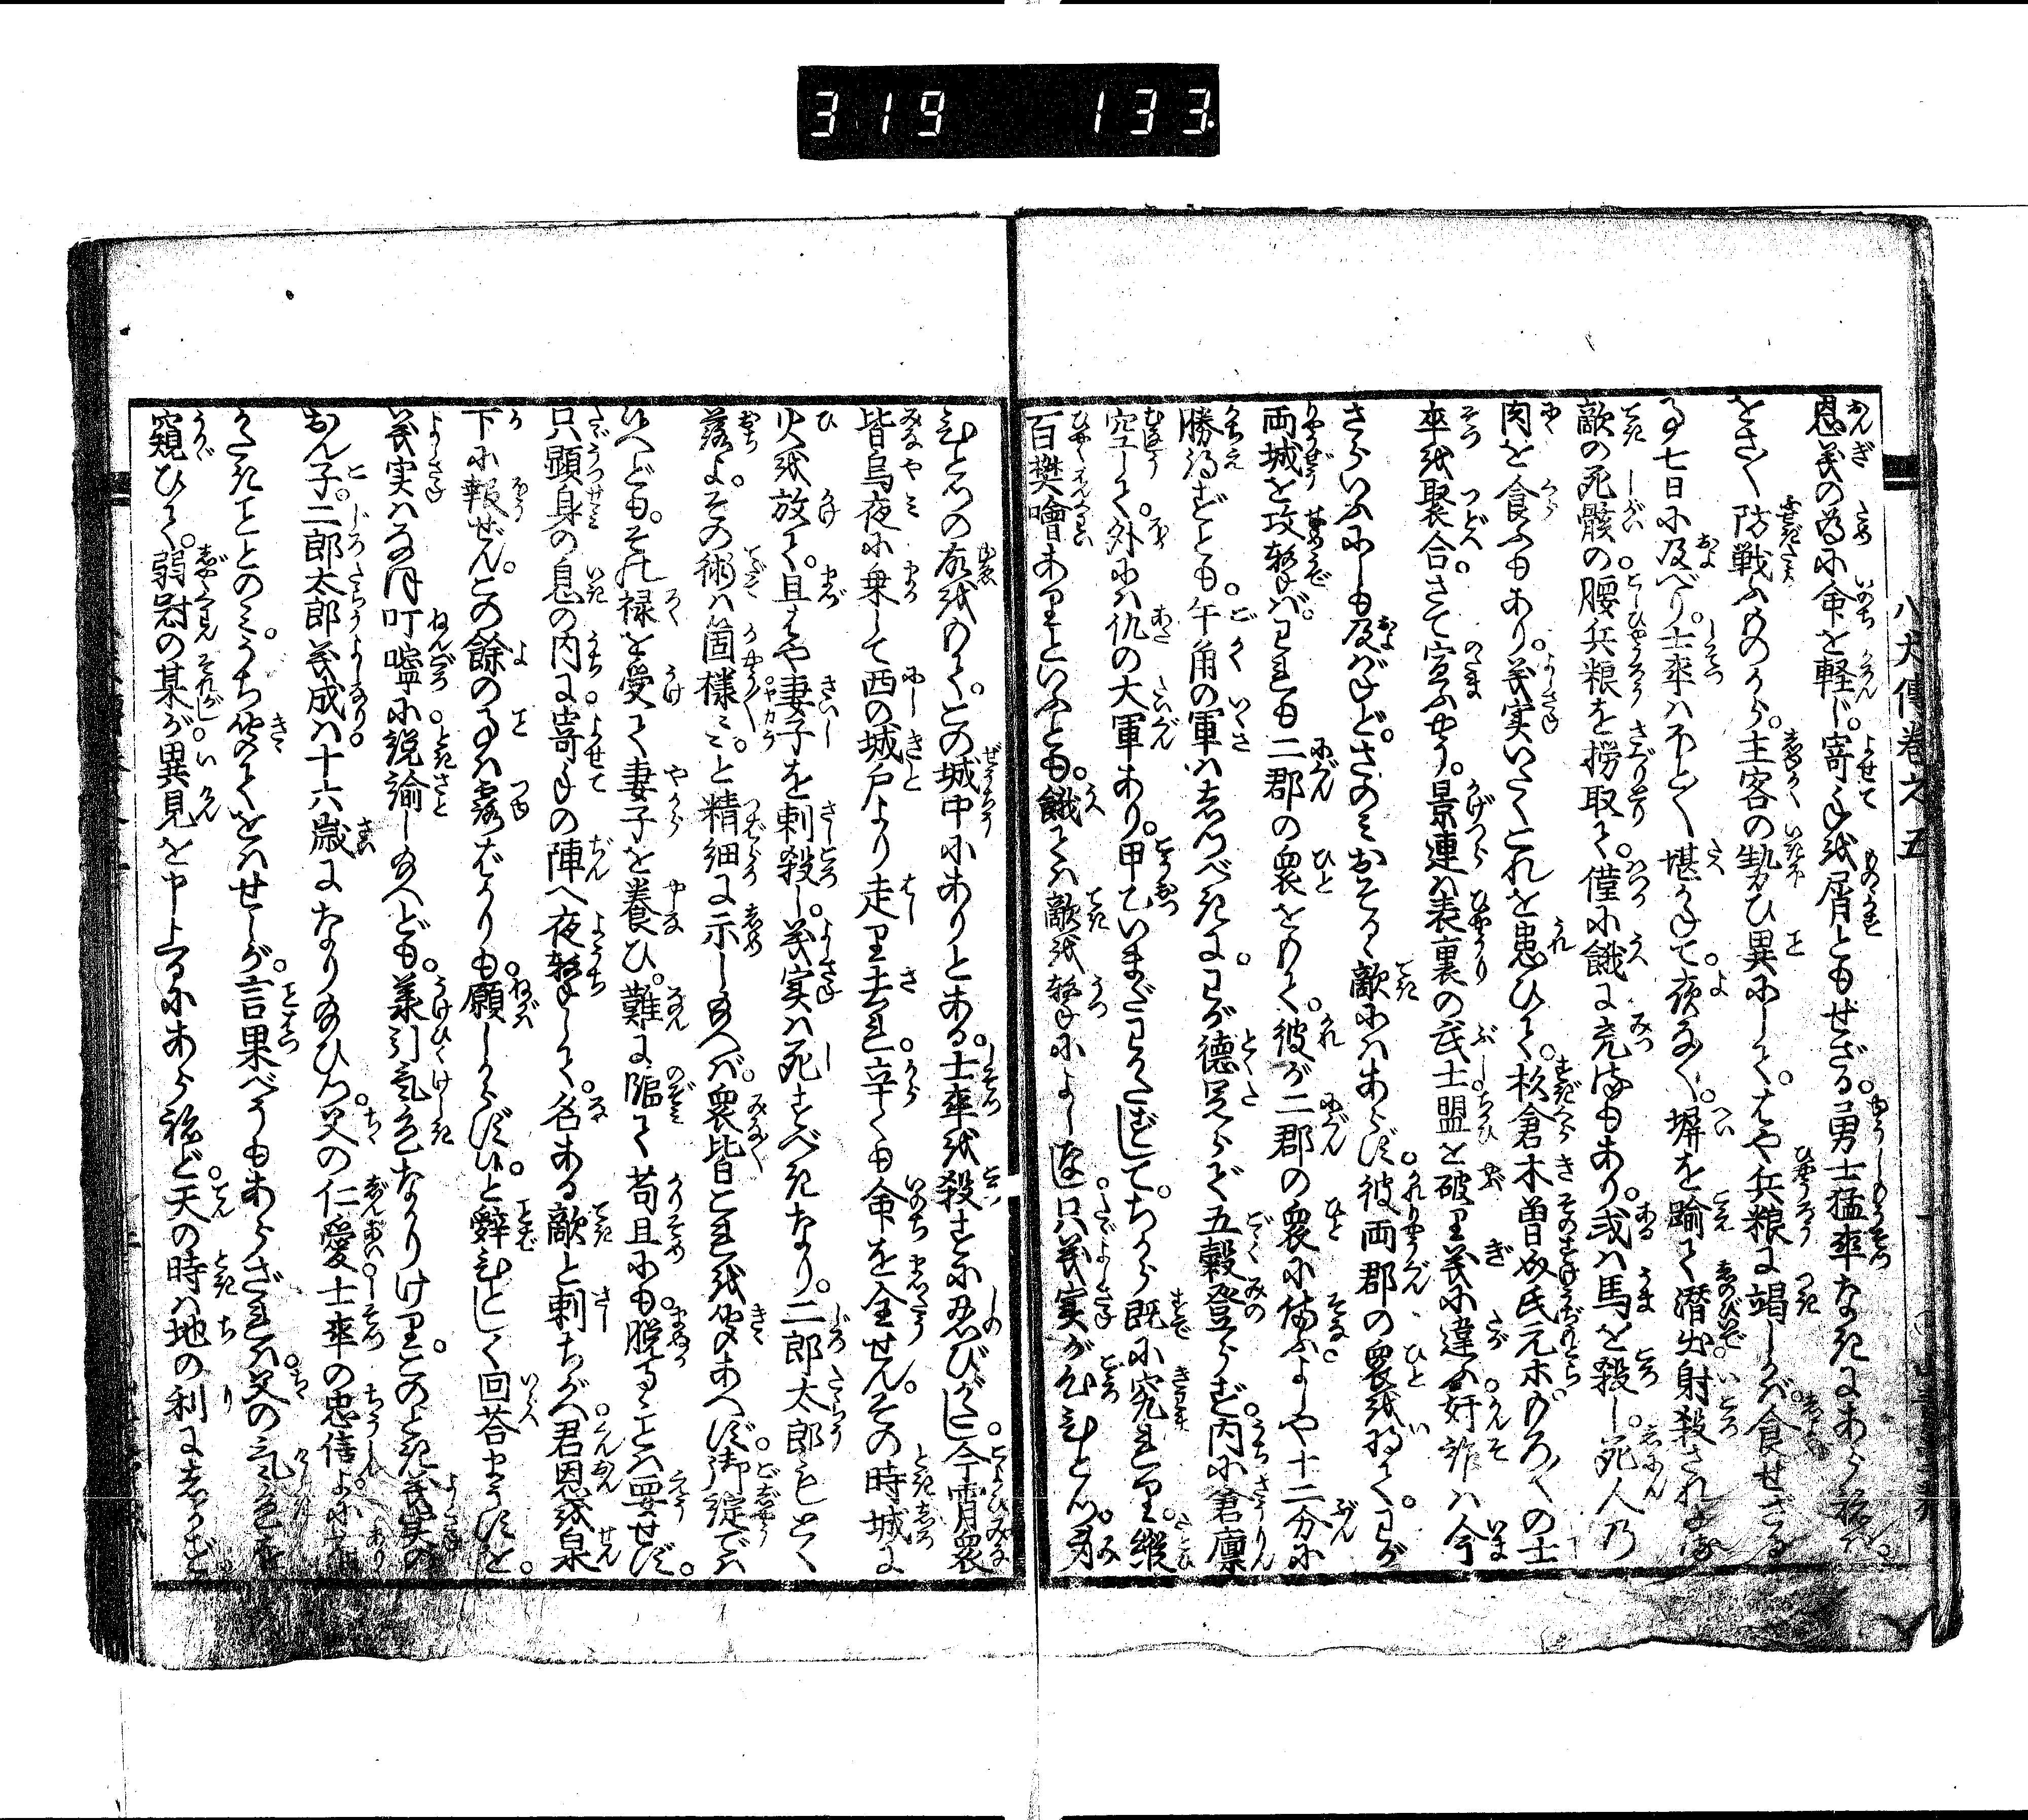 319 133.
八犬傳巻之五
恩義の為に命を軽じ。寄手を屑ともせざる。勇士猛卒なきにあらねば
をさ〳〵防戦ふものから。主客の勢ひ異にして。はや兵粮に竭しかば。食せざる
事七日に及べり。士卒はほと〳〵堪かねて。夜な〳〵。塀を踰て潜出射殺されたる
敵の死骸の。腰兵粮を撈取て。僅に餓に充るもあり。或は馬を殺し。死人の
肉を食ふもあり。義実いたくこれを患ひて。杉倉木曽介氏元等。もろ〳〵の士
卒を聚合。さて宣ふやう。景連は表裏の武士盟を破り義に違ふ奸詐は今
さらいふにしも及ばねど。さのみおそるゝ敵にはあらず。彼両郡の衆を将て。わが
両城を攻撃ば。われも二郡の衆をもて。彼が二郡の衆に備ふよしや十二分に
勝得ずとも。午角の軍はしつべきに。わが徳足らで五穀登らず。内に倉廩
空しくて。外には仇の大軍あり。甲乙いまだわかずして。ちから既に究れり。縦
百樊噲ありといふとも。餓ては敵を撃によしなし。只義実が心ひとつ。身
ひとつの故をもて。この城中にありとある。士卒を殺すに忍びがたし。今宵衆
皆烏夜に乗して西の城戸より走り去れ。辛くも命を全せん。その時城に
火を放て。且はや妻子を刺殺し。義実は死すべきなり。二郎太郎もとく
落よ。その術は箇様々々。と精細に示し給へば。衆皆これを聞あへず。御諚では
候へども。その禄を受て妻子を養ひ。難に臨て苟且にも。脱るゝことは要せず。
只顕身の息の内に。寄手の陣へ夜撃して。名ある敵と刺ちがへ。君恩を泉
下に報ぜん。この餘の事は露ばかりも。願しからず候。と辞ひとしく回答まうすを。
義実はなほ叮嚀に説諭し給へども。承引気色なかりけり。このとき義実の
おん子。二郎太郎義成は十六歳になり給ひつ。父の仁愛士卒の忠信よに
かたきことのみうち聞てをはせしが。言果べうもあらざれば。父の気色を
窺ひて。弱冠の某が異見を申上るにあらねど。天の時は地の利にしかず。